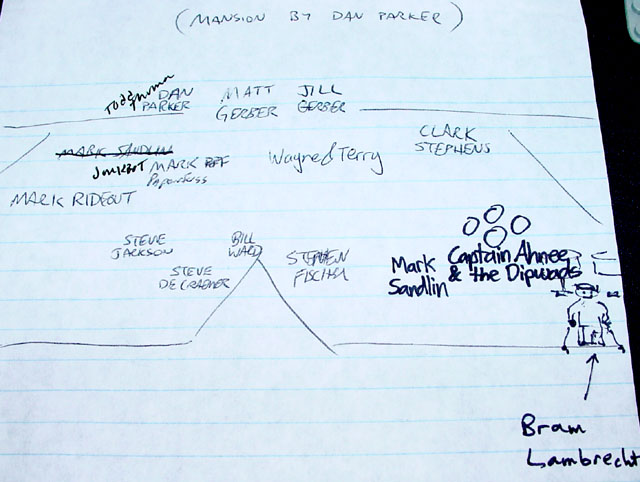 (MANSION BY DAN PARKER)
Todd Thuma
DAN PARKER
MATT GERBER
JILL GERBER
CLARK STEPHENS
MARK SANDLIN
Wayne & Terry
MARK
Papenfuss
MARK RIDEOUT
STEVE JACKSON
BILL WARD
STEVE DE CRAEMER
STEPHEN
Mark Sandlin
Captain Ahnee & the Dipwads
Bram
Lambrecht